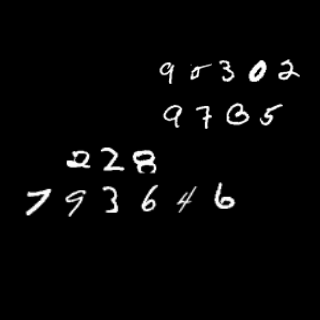 95302
9735
228
793646